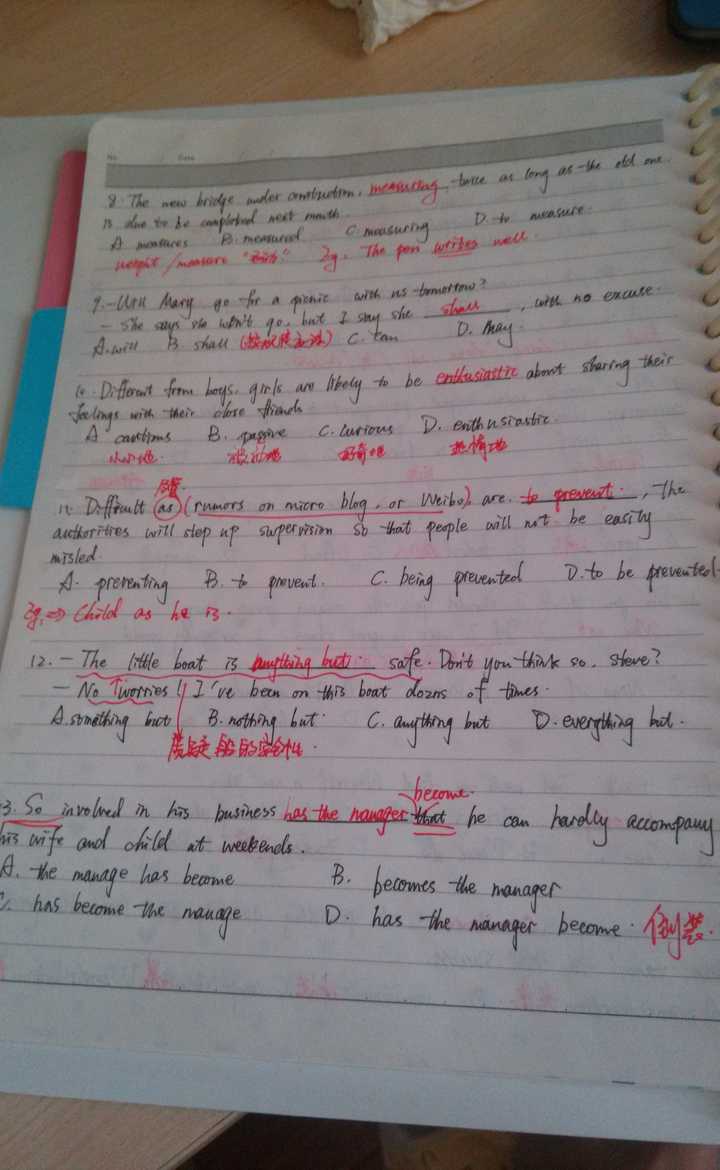 No. Date
8. The new bridge under construction, measuring twice as long as the old one.
is due to be completed next month.
A. measures B. measured C. measuring D. to measure.
weight / measure Eg. The pen writes well.
9. - Will Mary go for a picnic with us tomorrow?
- She says she won't go, but I say she shall, with no excuse.
A. will B. shall C. can D. may.
10. Different from boys, girls are likely to be enthusiastic about sharing their
feelings with their close friends
A. cautions B. passive C. curious D. enthusiastic.
小心地. 被动地 好奇地 热情地
11. Difficult as (rumors on micro blog, or Weibo) are to prevent, the
authorities will step up supervision so that people will not be easily
misled.
A. preventing B. to prevent. C. being prevented D. to be prevented.
Eg. => Child as he is.
12. - The little boat is anything but safe. Don't you think so, Steve?
- No worries! I've been on this boat dozns of times.
A. something but B. nothing but C. anything but D. everything but.
质疑船的安全性.
become.
3. So involved in his business has the manager that he can hardly accompany
his wife and child at weekends.
A. the manage has become B. becomes the manager
C. has become the manage D. has the manager become. 倒装.